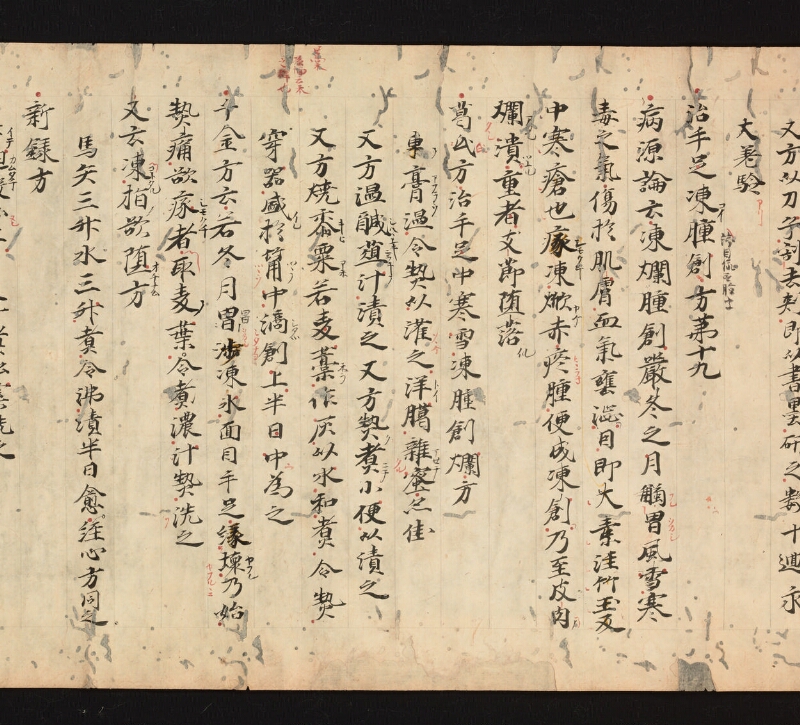 又方以刀子割去刺即以書墨研之數十遍永
大差驗
治手足凍腫創方第十九
病源論云凍爛腫創嚴冬之月觸冒風雪寒
毒之氣傷於肌膚血氣壅澁因即大素注竹玉反
中寒瘡也瘃凍焮赤疼腫便成凍創乃至皮肉
爛潰重者支節墮落
葛氏方治手足中寒雪凍腫創爛方
東膏溫令熱以灌之洋臈雜蜜亦佳
又方溫醎菹汁漬之又方熱煮小便以漬之
又方燒黍粟若麦藁作灰以水和煮令熱
穿器盛於甯中滴創上半日中為之
千金方云若冬月冒涉凍氷面目手足瘃㿊乃始
熱痛欲瘃者取麦蘖令煮濃汁熱洗之
又云凍指欲墮方
馬矢三升水三升煮令沸漬半日愈經心方同之
新錄方